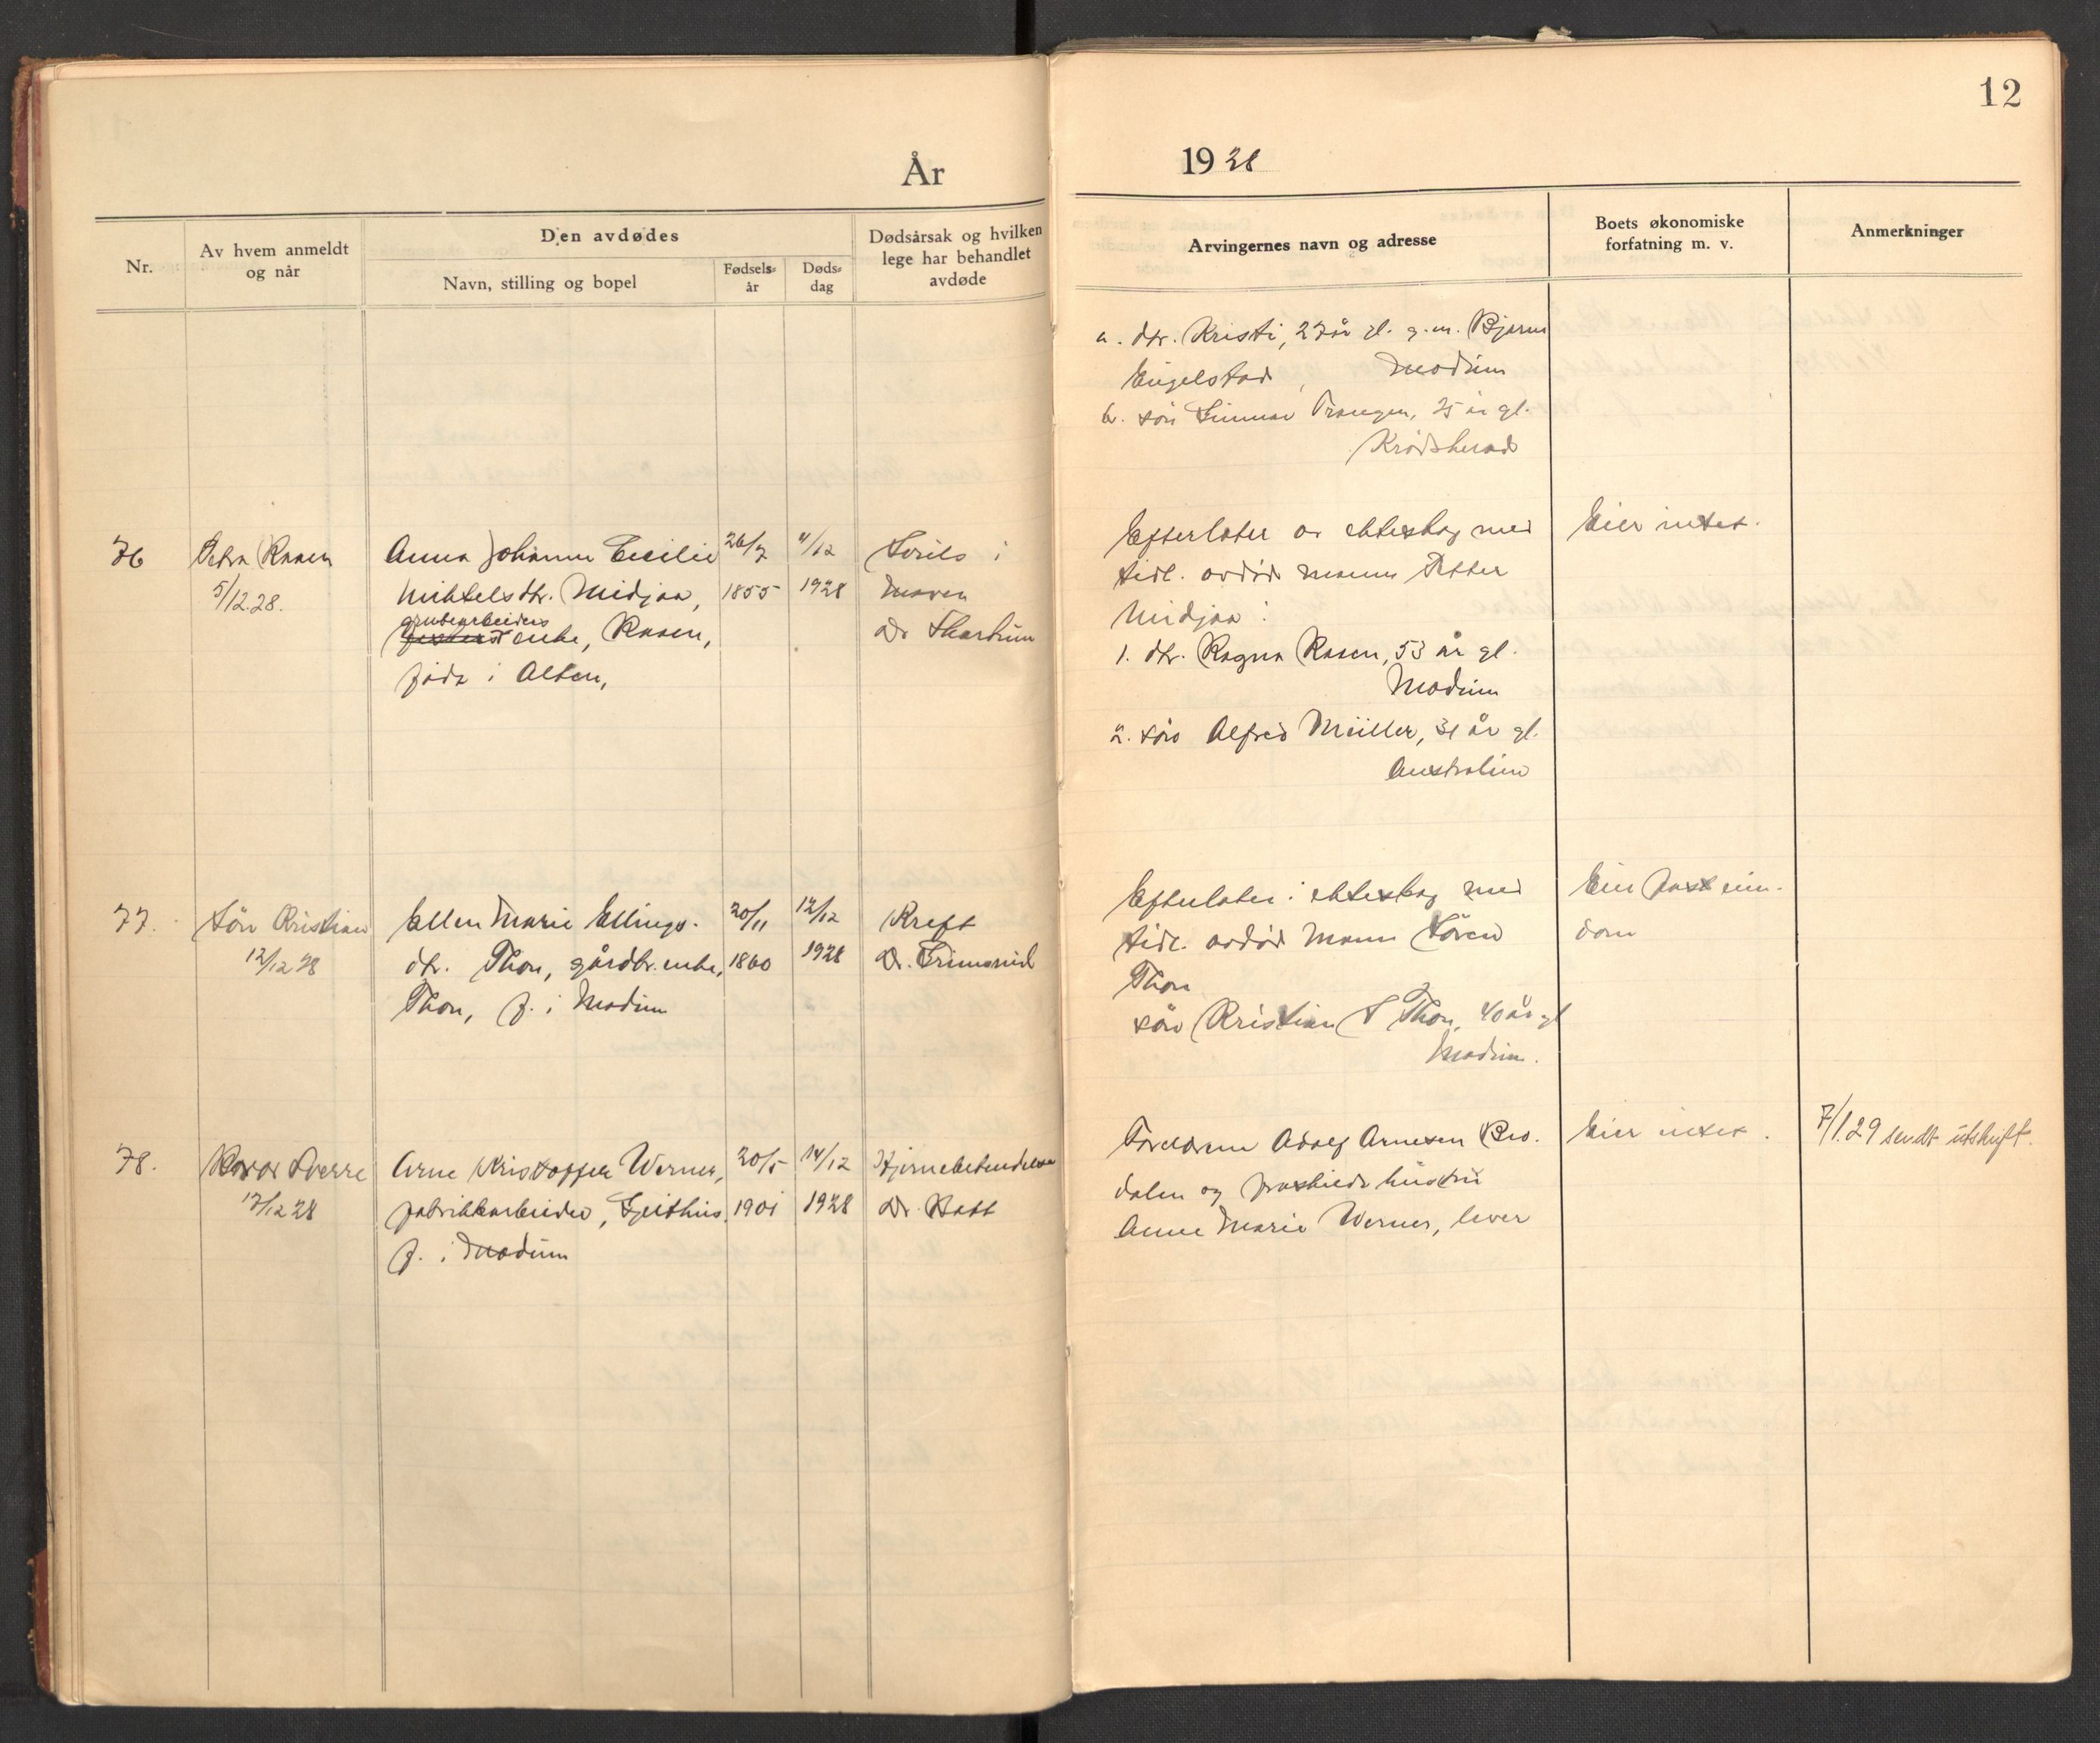 12
År 1928
Nr.
Av hvem anmeldt
og når
Den avdødes
Navn, stilling og bopel
Fødsels-
år
Døds-
dag
Dødsårsak og hvilken
lege har behandlet
avdøde
Arvingernes navn og adresse
Boets økonomiske
forfatning m. v.
Anmerkninger
a. dtr. Kristi, 27 år gl. g.m. Bjarne
Engelstad, Modum
b. søn Gunnar Prangen, 25 år gl.
Krødsherad
76
Petra Raaen
5/12.28.
Anna Johanne Cecilie
Mikkelsdtr. Midjaa,
grubearbeiders
enke, Raaen,
født i Alten,
26/7
1855
4/12
1928
i
Maven
Dr
Efterlater av ekteskap med
tidl. avdød mann Petter
Midjaa:
1. dtr. Ragna Raaen, 53 år gl.
Modum
2. søn Alfred Müller, 31 år gl.
Australien
Eier intet.
77.
søn Kristian
12/12 28
Ellen Marie Ellings-
dtr. Thon, gårdbr. enke,
Thon, f. i Modum
20/11
1860
12/12
1928
Kreft
Dr.
Efterlater i ekteskap med
tidl. avdød mann Søren
Thon
søn Kristian S Thon, 40 år gl
Modum.
Eier fast eien-
dom
78.
Sverre
17/12 28
Arne Kristoffer Werner,
fabrikkarbeider, Geithus,
f. i Modum
20/5
1901
14/12
1928
Hjernebetendelse
Dr. Batt
Foreldrene Adolf Arnesen Bro-
dalen og fraskilt hustru
Anne Marie Werner, lever
Eier intet.
7/1.29 sendt utskrift.